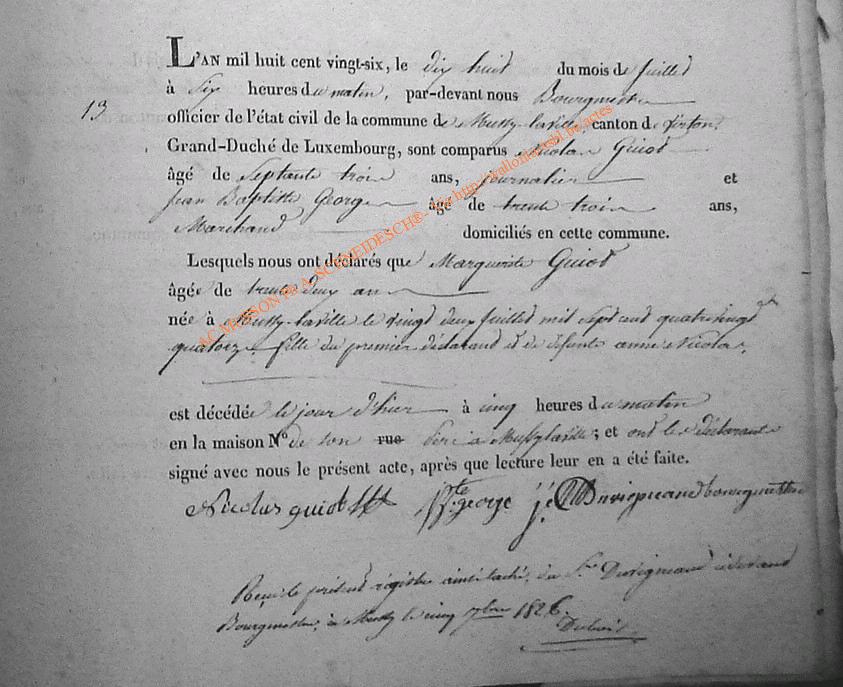 L'AN mil huit cent vingt-six, le dix huit du mois de juillet
à six heures du matin, par-devant nous Bourgmestre
13 officier de l'état civil de la commune de Mussy-laville, canton de virton,
Grand-Duché de Luxembourg, sont comparus Nicolas Guiot
âgé de septante trois ans, journalier et
Jean Baptiste George âgé de trente trois ans,
Marchand domiciliés en cette commune.
Lesquels nous ont déclarés que Marguerite Guiot
âgée de trente deux an
née à Mussy-laville le vingt deux juillet mil sept cent quatrevingt
quatorze, fille du premier déclarant et de défunte anne Nicolas,
est décédée le jour d'hier à cinq heures du matin
en la maison N° de son rue Père à Mussylaville; et ont les déclarants
signé avec nous le présent acte, après que lecture leur en a été faite.
Nicolas guiot george Duvigneaud bourgmestre
Reçu le présent régistre ainsi taché, du Sr. Duvigneaud cidevant
Bourgmestre, à Mussy le cinq 7bre 1826.
Dubois
AC MUSSON A. SCHNEIDESCH® - via http://wallonia.asbl.be/actes